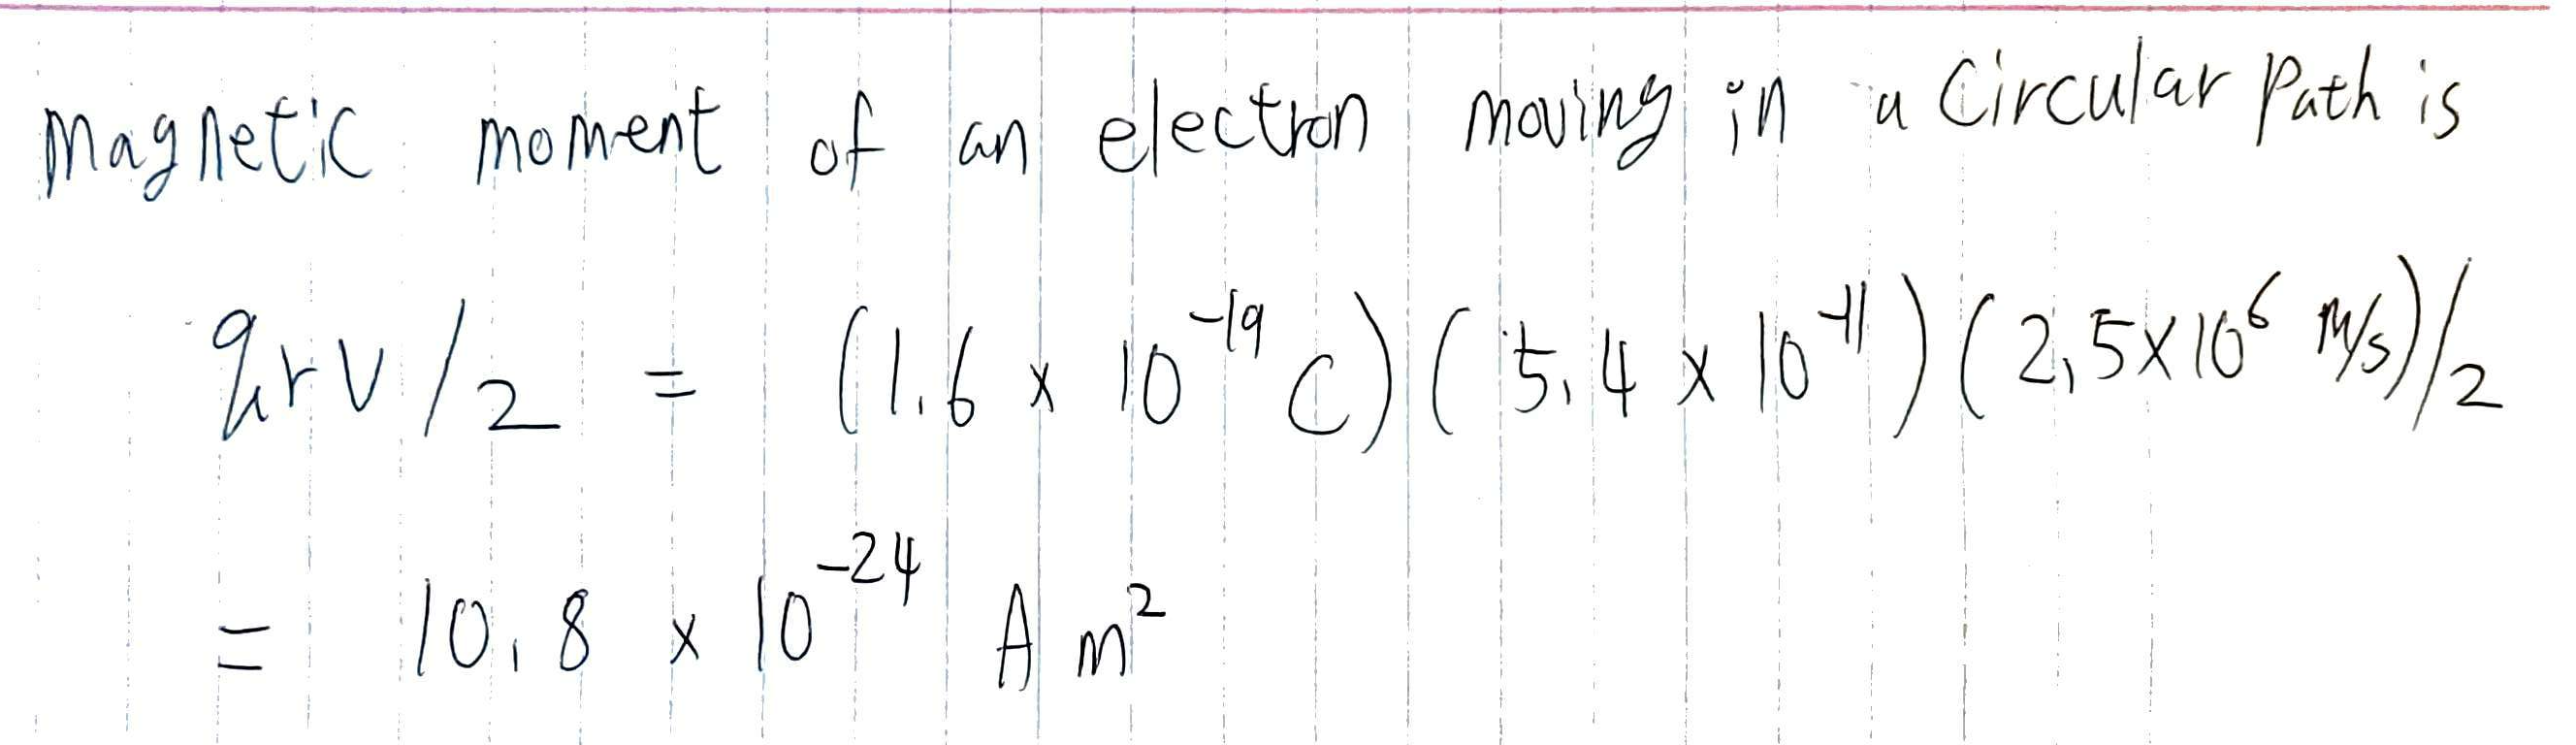 Magnetic moment of an electron moving in a Circular Path is
qrv/2 = (1.6 x 10⁻¹⁹ C)(5.4 x 10⁻¹¹)(2.5x10⁶ m/s)/2
= 10.8 x 10⁻²⁴ A m²